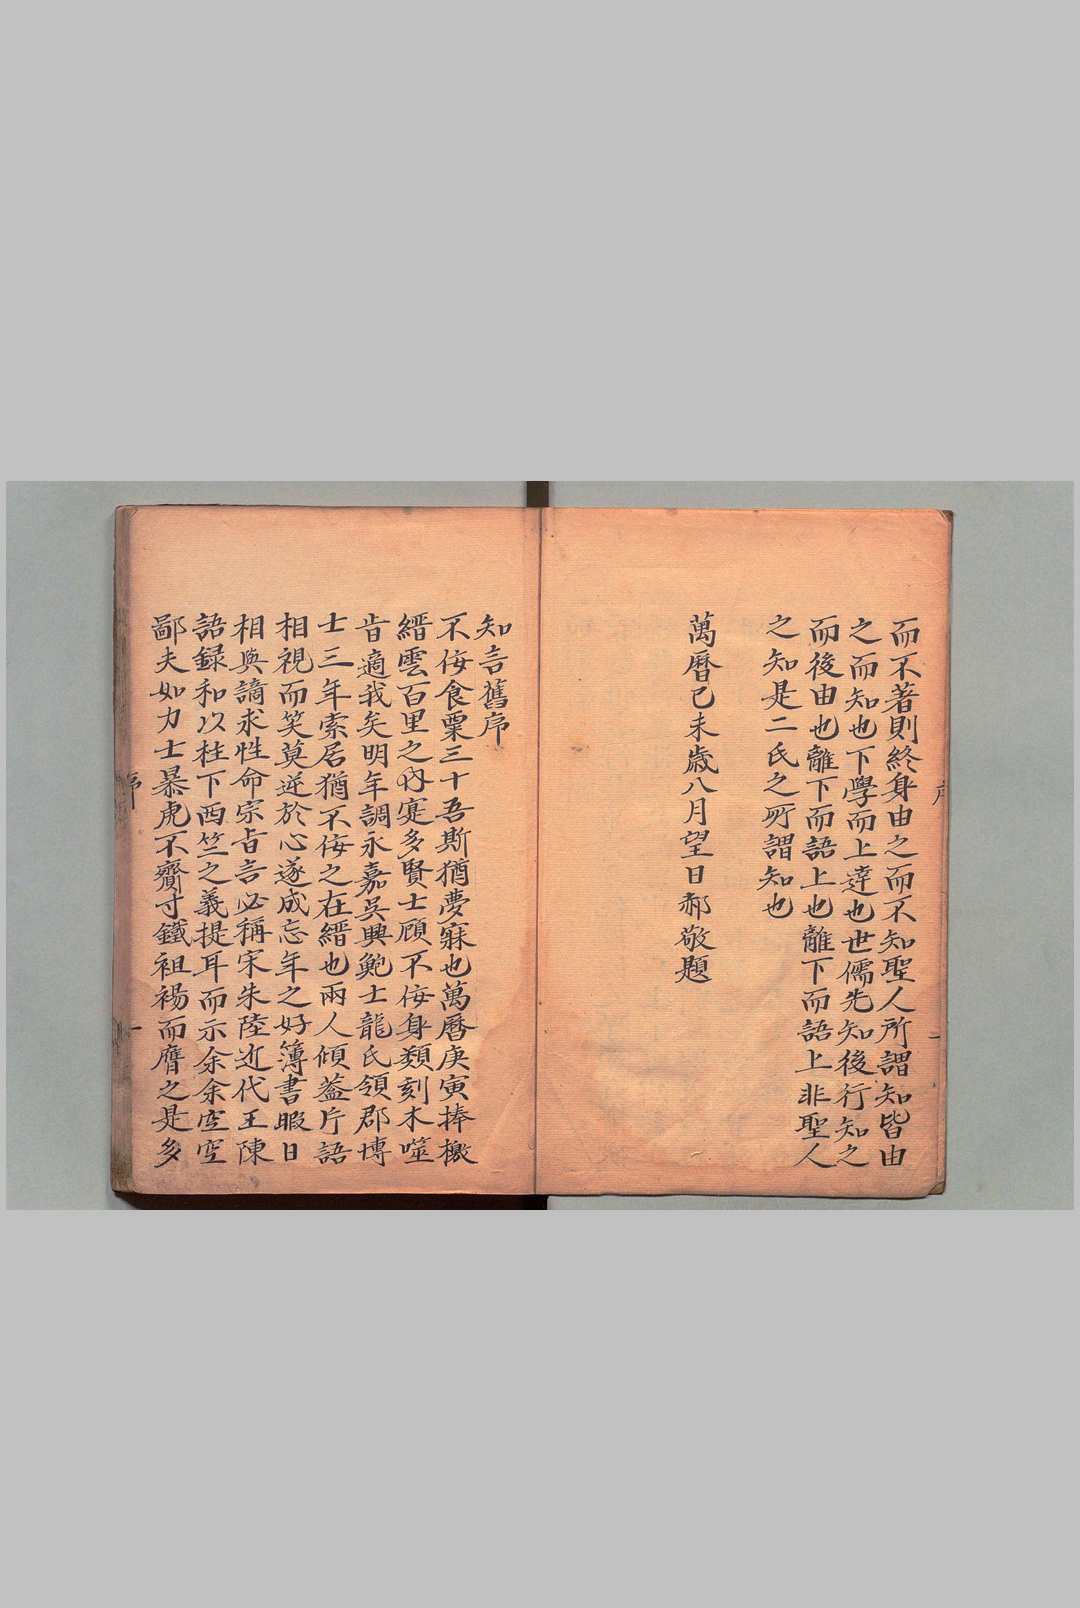 序
二
而不著則終身由之而不知聖人所謂知皆由
之而知也下學而上達也世儒先知後行知之
而後由也離下而語上也離下而語上非聖人
之知是二氏之所謂知也
萬曆己未歲八月望日郝敬題
知言舊序
不佞食粟三十吾斯猶夢寐也萬曆庚寅捧檄
縉雲百里之內寔多賢士顧不佞身類刻木噬
肯適我矣明年調永嘉吳興鮑士龍氏領郡博
士三年索居猶不佞之在縉也兩人傾蓋片語
相視而笑莫逆於心遂成忘年之好簿書暇日
相與謫求性命宗旨言必稱宋朱陸近代王陳
語錄和以柱下西竺之義提耳而示余余空空
鄙夫如力士暴虎不齎寸鐵袒裼而膺之是多
序
一